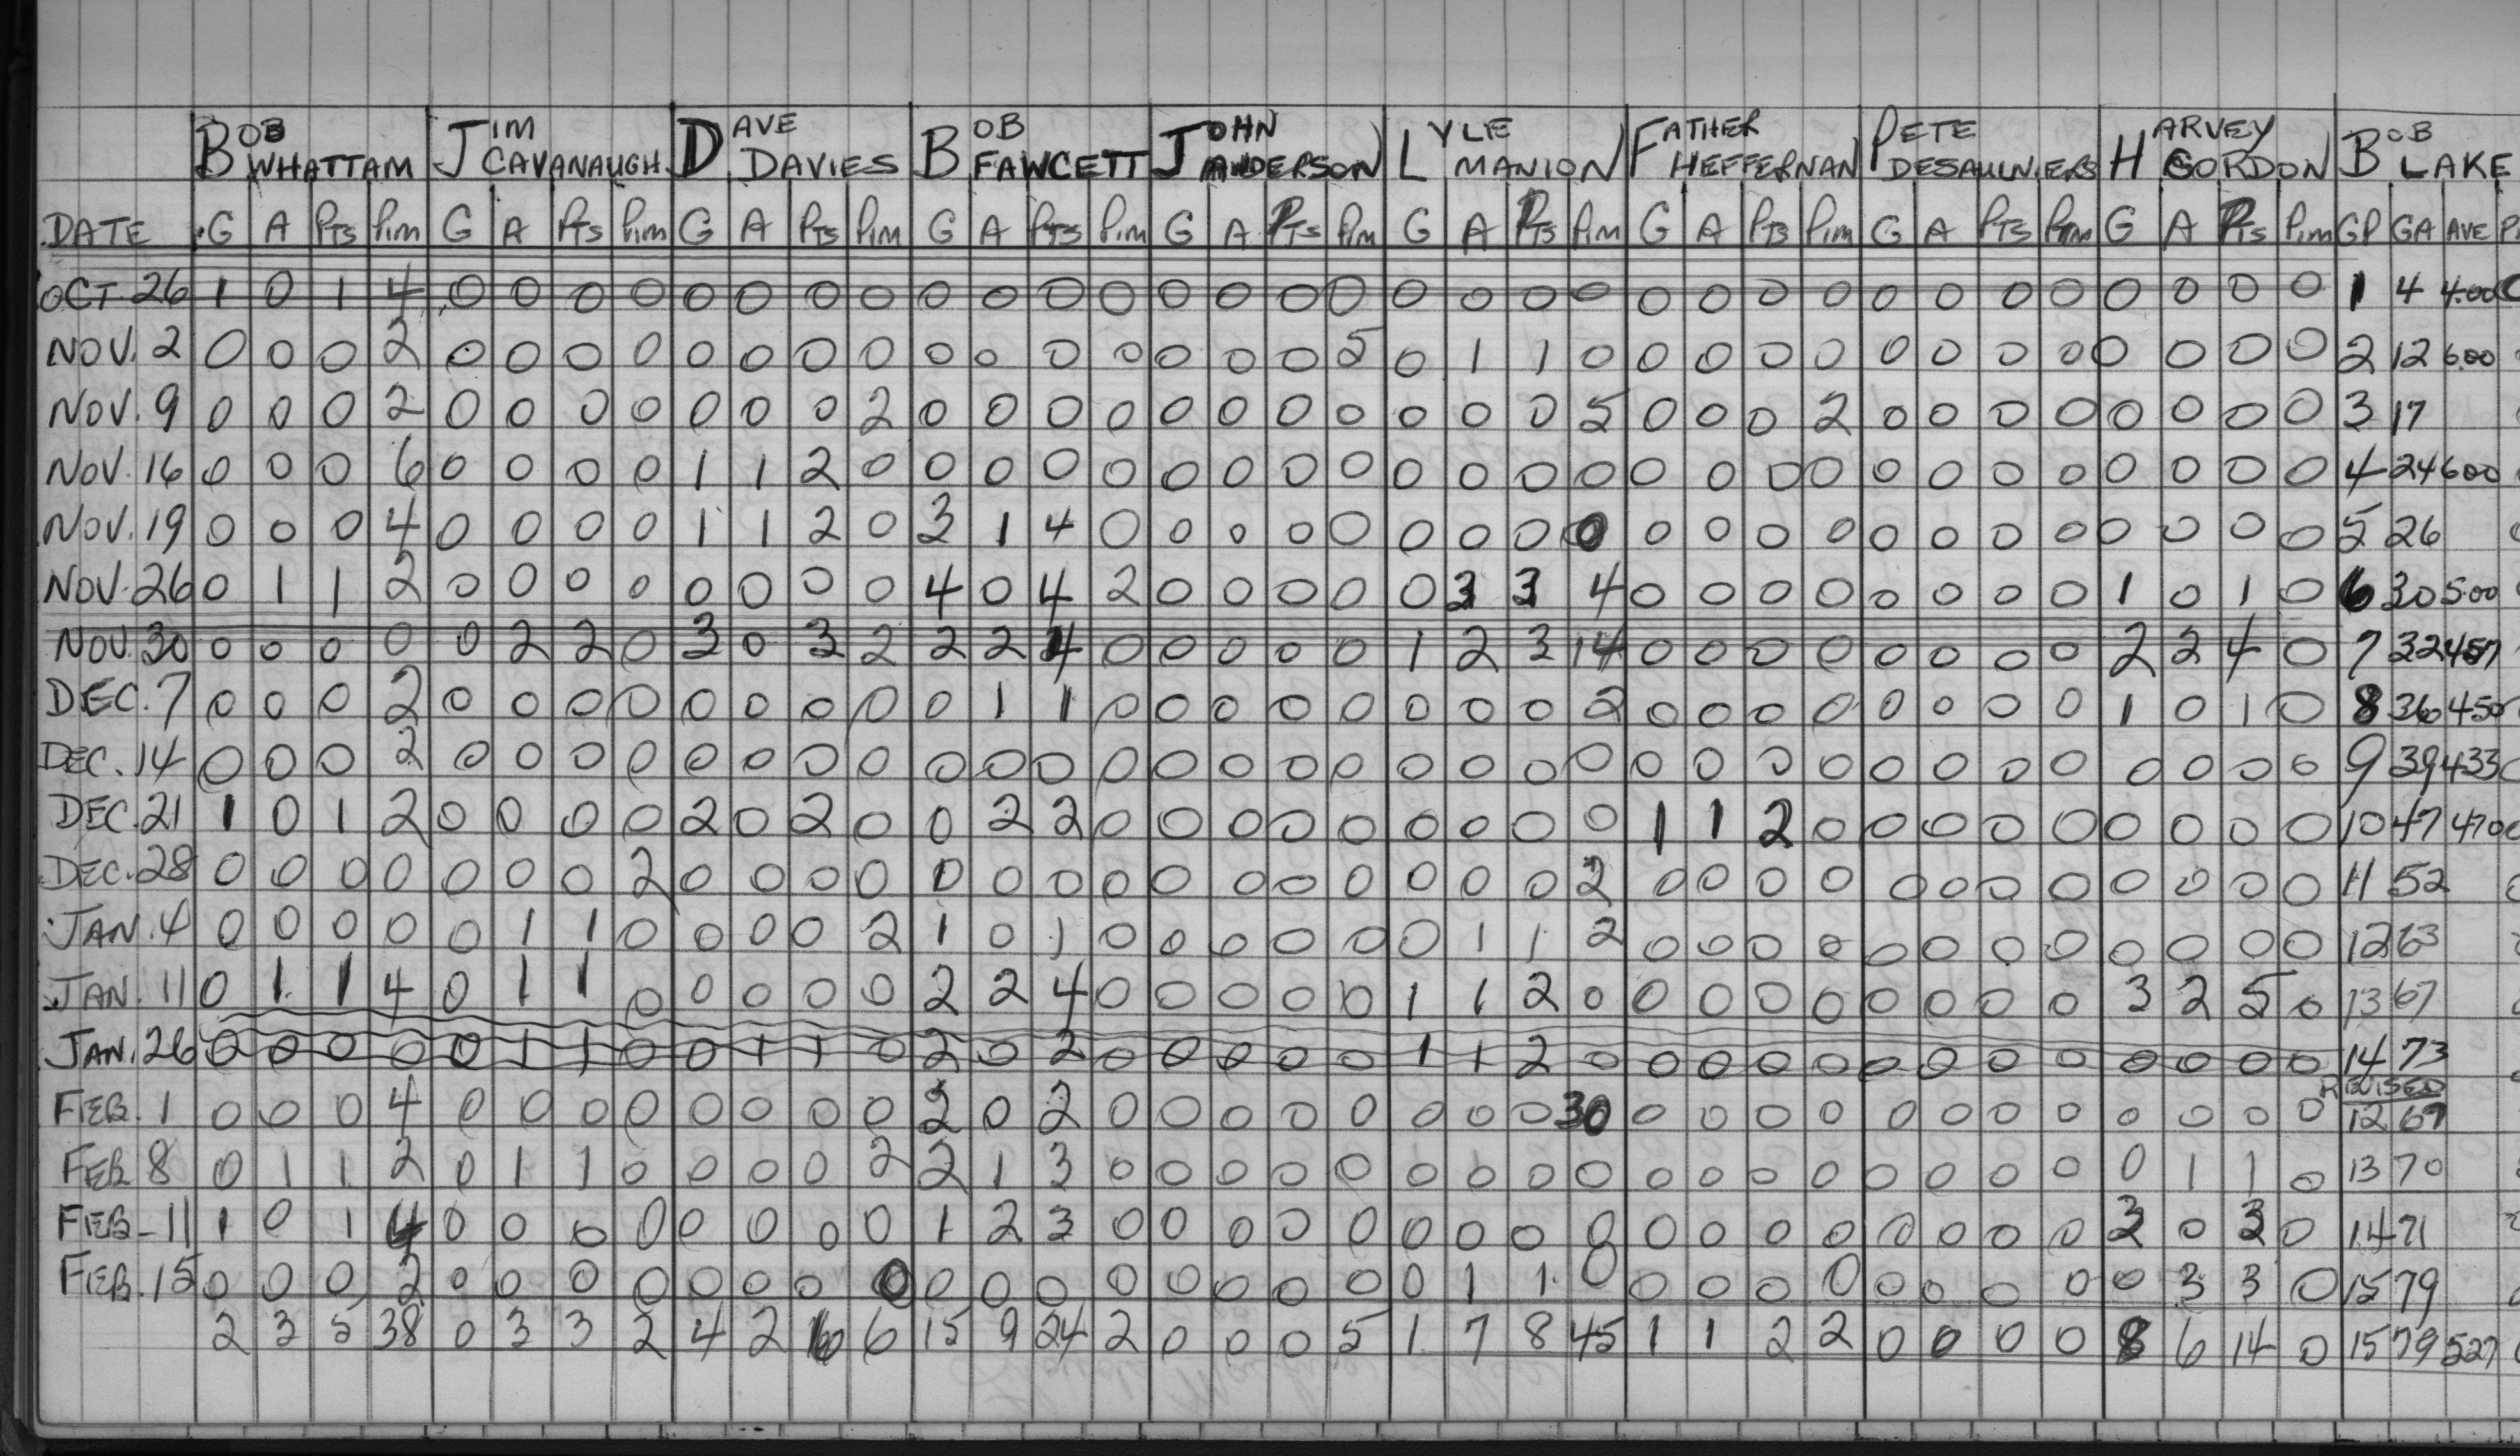 BOB WHATTAM JIM CAVANAUGH DAVE DAVIES BOB FAWCETT JOHN ANDERSON LYLE MANION FATHER HEFFERNAN PETE DESAULNIERS HARVEY GORDON BOB LAKE
DATE G A PTS Pim G A PTS Pim G A PTS Pim G A PTS Pim G A PTS Pim G A PTS Pim G A PTS Pim G A PTS Pim G A PTS Pim GP GA AVE
OCT. 26 1 0 1 4 0 0 0 0 0 0 0 0 0 0 0 0 0 0 0 0 0 0 0 0 0 0 0 0 0 0 0 0 0 0 0 0 1 4 4.00
NOV. 2 0 0 0 2 0 0 0 0 0 0 0 0 0 0 0 0 0 0 0 5 0 1 1 0 0 0 0 0 0 0 0 0 0 0 0 0 2 12 6.00
NOV. 9 0 0 0 2 0 0 0 0 0 0 0 2 0 0 0 0 0 0 0 0 0 0 0 5 0 0 0 2 0 0 0 0 0 0 0 0 3 17
NOV. 16 0 0 0 6 0 0 0 0 1 1 2 0 0 0 0 0 0 0 0 0 0 0 0 0 0 0 0 0 0 0 0 0 0 0 0 0 4 24 600
NOV. 19 0 0 0 4 0 0 0 0 1 1 2 0 3 1 4 0 0 0 0 0 0 0 0 0 0 0 0 0 0 0 0 0 0 0 0 0 5 26
NOV. 26 0 1 1 2 0 0 0 0 0 0 0 0 4 0 4 2 0 0 0 0 0 3 3 4 0 0 0 0 0 0 0 0 1 0 1 0 6 30 5.00
NOV. 30 0 0 0 0 0 2 2 0 3 0 3 2 2 2 4 0 0 0 0 0 1 2 3 14 0 0 0 0 0 0 0 0 2 2 4 0 7 32 457
DEC. 7 0 0 0 2 0 0 0 0 0 0 0 0 0 1 1 0 0 0 0 0 0 0 0 2 0 0 0 0 0 0 0 0 1 0 1 0 8 36 450
DEC. 14 0 0 0 2 0 0 0 0 0 0 0 0 0 0 0 0 0 0 0 0 0 0 0 0 0 0 0 0 0 0 0 0 0 0 0 0 9 39 433
DEC. 21 1 0 1 2 0 0 0 0 2 0 2 0 0 2 2 0 0 0 0 0 0 0 0 0 1 1 2 0 0 0 0 0 0 0 0 0 10 47 470
DEC. 28 0 0 0 0 0 0 0 2 0 0 0 0 0 0 0 0 0 0 0 0 0 0 0 2 0 0 0 0 0 0 0 0 0 0 0 0 11 52
JAN. 4 0 0 0 0 0 1 1 0 0 0 0 2 1 0 1 0 0 0 0 0 0 1 1 2 0 0 0 0 0 0 0 0 0 0 0 0 12 63
JAN. 11 0 1 1 4 0 1 1 0 0 0 0 0 2 2 4 0 0 0 0 0 1 1 2 0 0 0 0 0 0 0 0 0 3 2 5 0 13 67
JAN. 26 0 0 0 0 0 1 1 0 0 1 1 0 2 0 2 0 0 0 0 0 1 1 2 0 0 0 0 0 0 0 0 0 0 0 0 0 14 73
REVISED
FEB. 1 0 0 0 4 0 0 0 0 0 0 0 0 2 0 2 0 0 0 0 0 0 0 0 30 0 0 0 0 0 0 0 0 0 0 0 0 12 67
FEB 8 0 1 1 2 0 1 1 0 0 0 0 2 2 1 3 0 0 0 0 0 0 0 0 0 0 0 0 0 0 0 0 0 0 1 1 0 13 70
FEB - 11 1 0 1 4 0 0 0 0 0 0 0 0 1 2 3 0 0 0 0 0 0 0 0 0 0 0 0 0 0 0 0 0 3 0 3 0 14 71
FEB. 15 0 0 0 2 0 0 0 0 0 0 0 0 0 0 0 0 0 0 0 0 0 1 1 0 0 0 0 0 0 0 0 0 0 3 3 0 15 79
2 3 5 38 0 3 3 2 4 2 6 6 15 9 24 2 0 0 0 5 1 7 8 45 1 1 2 2 0 0 0 0 8 6 14 0 15 79 527